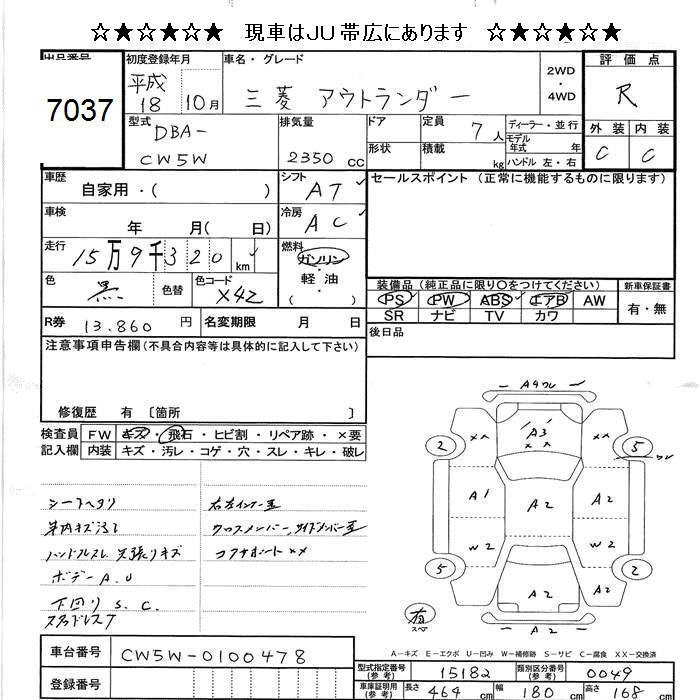 ☆★☆★☆★ 現車はJU帯広にあります ☆★☆★☆★
出品番号
7037
初度登録年月
平成
18 10月
車名・グレード
三菱 アウトランダー
2WD
・
4WD
評価点
R
外装 内装
C C
型式
DBA-
CW5W
排気量
2350 CC
ドア
形状
定員
7 人
積載
kg
ディーラー・並行
モデル
年式 年
ハンドル 左・右
車歴
自家用・( )
シフト
AT
セールスポイント (正常に機能するものに限ります)
車検
年 月( 日)
冷房
AC
走行
15万9千320 km
燃料
ガソリン
・
軽油
( )
色
黒
色替
色コード
X42
装備品 (純正品に限り○をつけてください)
新車保証書
PS PW ABS エアB AW
SR ナビ TV カワ
有・無
R券 13.860 円
名変期限 月 日
後日品
注意事項申告欄(不具合内容等は具体的に記入して下さい)
修復歴 有 〔箇所 〕
検査員
記入欄
FW キズ・飛石・ヒビ割・リペア跡・×要
内装 キズ・汚レ・コゲ・穴・スレ・キレ・破レ
シートヘタリ
車内キズ汚レ
ハンドルスレ 天張りキズ
ボデーA.U
下回りS.C.
スタッドレス7
右左インナー歪
クロスメンバー,サイドメンバー歪
コアサポートXX
A4ワレ
XX A3 XX
2 5
ワレ
A1 A2 A2
W2 W2
5 2
A2 A2
A2
有
スペア
A-キズ E-エクボ U-凹み W-補修跡 S-サビ C-腐食 XX-交換済
車台番号 CW5W-0100478
登録番号
型式指定番号
(参考)
15182
類別区分番号
(参考)
0049
車庫証明用
(参考)
長さ 464 cm
幅 180 cm
高さ 168 cm